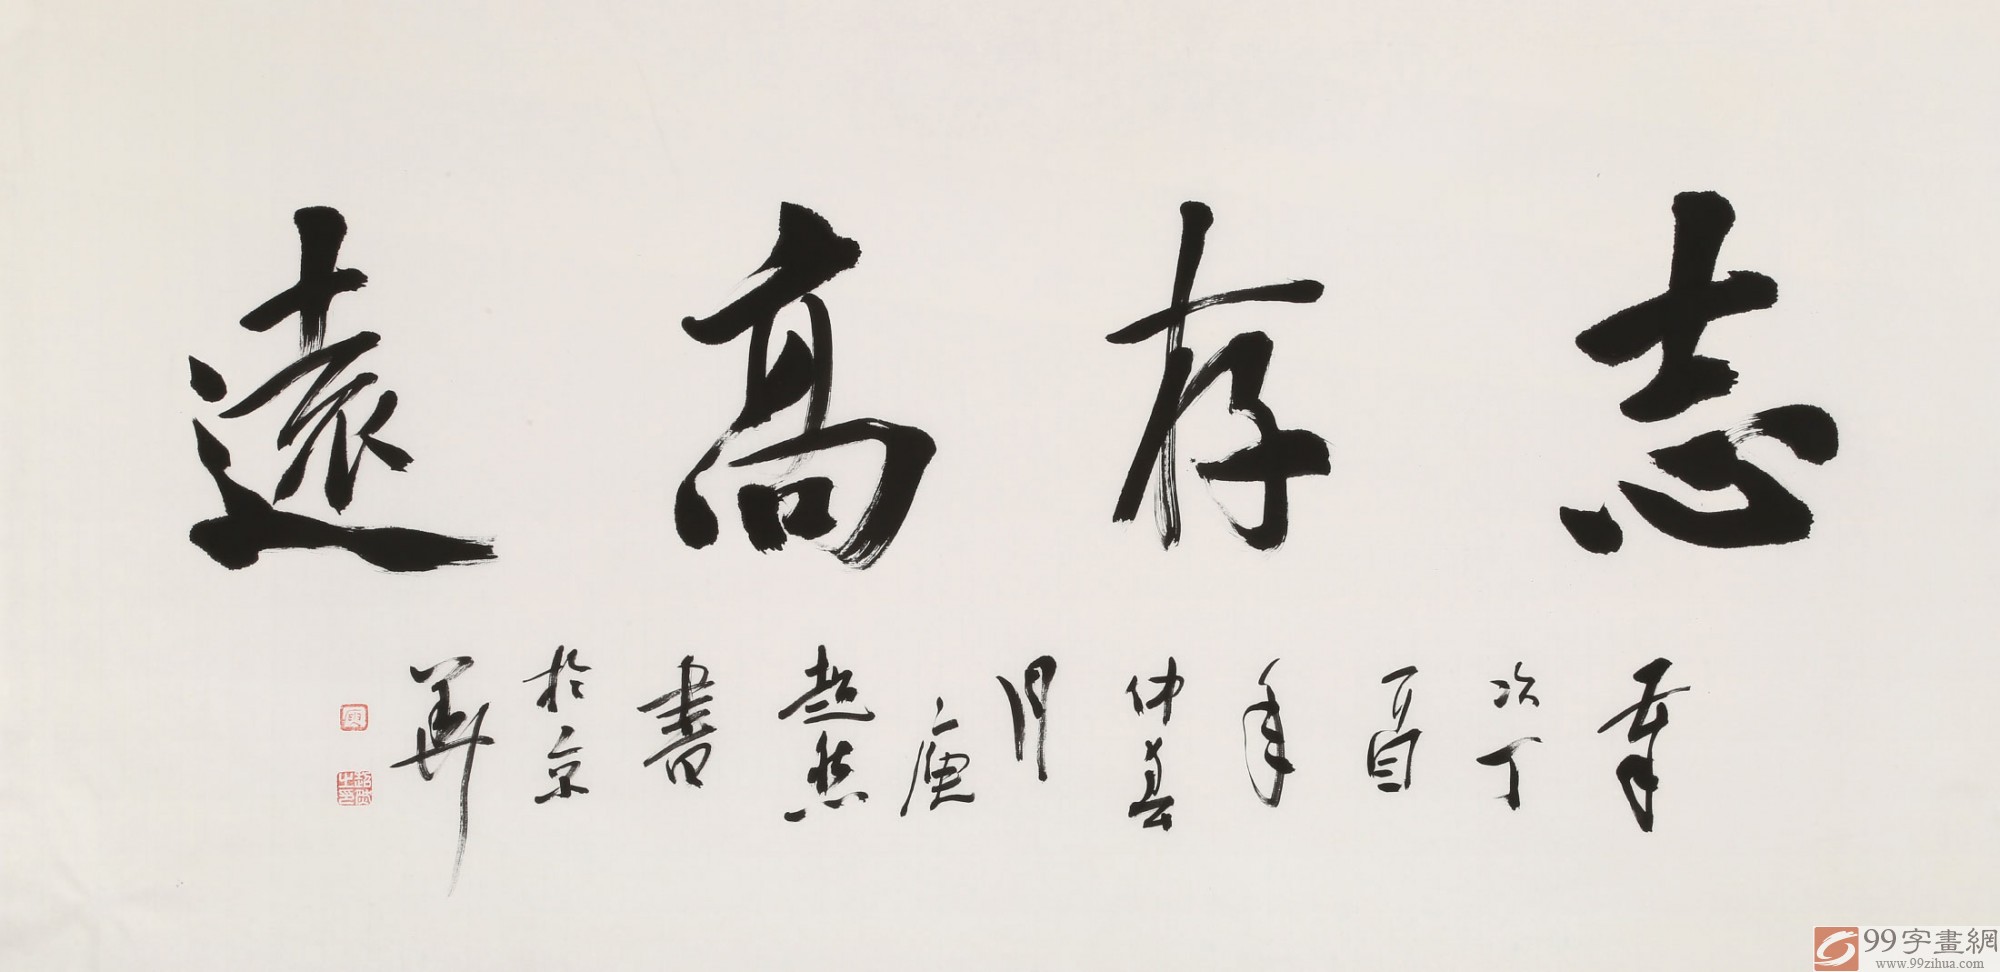 志存高遠
歲次丁酉年仲春月 超然書於京華
超然之印
99字畫網
www.99zihua.com